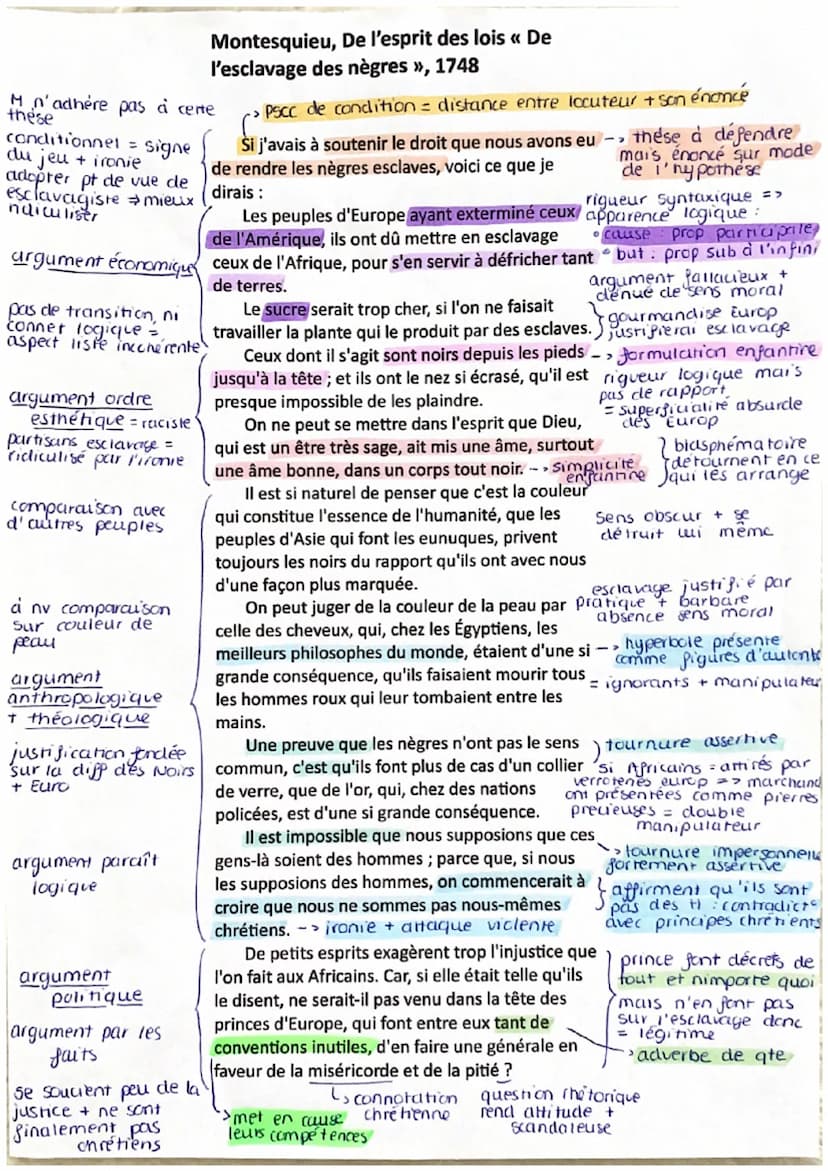 Montesquieu, De l'esprit des lois « De
l'esclavage des nègres », 1748
M n'adhère pas à cette
thèse
conditionnel = signe
du jeu + ironie
adopter pt de vue de
esclavagiste => mieux
ridiculiser
PSCC de condition = distance entre locuteur + son énoncé
Si j'avais à soutenir le droit que nous avons eu
de rendre les nègres esclaves, voici ce que je
dirais :
--> thèse à défendre
mais énoncé sur mode
de l'hypothèse
Les peuples d'Europe ayant exterminé ceux
de l'Amérique, ils ont dû mettre en esclavage
ceux de l'Afrique, pour s'en servir à défricher tant
de terres.
rigueur syntaxique =>
apparence logique :
• cause : prop participiale
• but : prop sub à l'infini
argument fallacieux +
dénué de sens moral
argument économique
Le sucre serait trop cher, si l'on ne faisait
travailler la plante qui le produit par des esclaves.
gourmandise Europ
justifierai esclavage
pas de transition, ni
connet logique =
aspect liste incohérente
Ceux dont il s'agit sont noirs depuis les pieds
jusqu'à la tête ; et ils ont le nez si écrasé, qu'il est
presque impossible de les plaindre.
--> formulation enfantine
rigueur logique mais
pas de rapport
= superficialité absurde
des Europ
argument ordre
esthétique = raciste
partisans esclavage =
ridiculisé par l'ironie
On ne peut se mettre dans l'esprit que Dieu,
qui est un être très sage, ait mis une âme, surtout
une âme bonne, dans un corps tout noir.
--> simplicité
enfantine
blasphématoire
détournent en ce
qui les arrange
Il est si naturel de penser que c'est la couleur
qui constitue l'essence de l'humanité, que les
peuples d'Asie qui font les eunuques, privent
toujours les noirs du rapport qu'ils ont avec nous
d'une façon plus marquée.
comparaison avec
d'autres peuples
sens obscur + se
détruit lui même
On peut juger de la couleur de la peau par
celle des cheveux, qui, chez les Égyptiens, les
meilleurs philosophes du monde, étaient d'une si
grande conséquence, qu'ils faisaient mourir tous
les hommes roux qui leur tombaient entre les
mains.
à nv comparaison
sur couleur de
peau
esclavage justifié par
pratique + barbare
absence sens moral
--> hyperbole présente
comme figures d'autorité
= ignorants + manipulateur
argument
anthropologique
+ théologique
Une preuve que les nègres n'ont pas le sens
commun, c'est qu'ils font plus de cas d'un collier
de verre, que de l'or, qui, chez des nations
policées, est d'une si grande conséquence.
justification fondée
sur la diff des Noirs
+ Euro
tournure assertive
si Africains = attirés par
verroteries europ => marchand
ont présentées comme pierres
précieuses = double
manipulateur
Il est impossible que nous supposions que ces
gens-là soient des hommes ; parce que, si nous
les supposions des hommes, on commencerait à
croire que nous ne sommes pas nous-mêmes
chrétiens. --> ironie + attaque violente
argument paraît
logique
-> tournure impersonnelle
fortement assertive
affirment qu'ils sont
pas des H : contradict°
avec principes chrétiens
De petits esprits exagèrent trop l'injustice que
l'on fait aux Africains. Car, si elle était telle qu'ils
le disent, ne serait-il pas venu dans la tête des
princes d'Europe, qui font entre eux tant de
conventions inutiles, d'en faire une générale en
faveur de la miséricorde et de la pitié ?
argument
politique
argument par les
faits
se soucient peu de la
justice + ne sont
finalement pas
chrétiens
prince font décrets de
tout et nimporte quoi
mais n'en font pas
sur l'esclavage donc
= légitime
adverbe de qte
connotation
chrétienne
question rhétorique
rend attitude +
scandaleuse
met en cause
leurs compétences